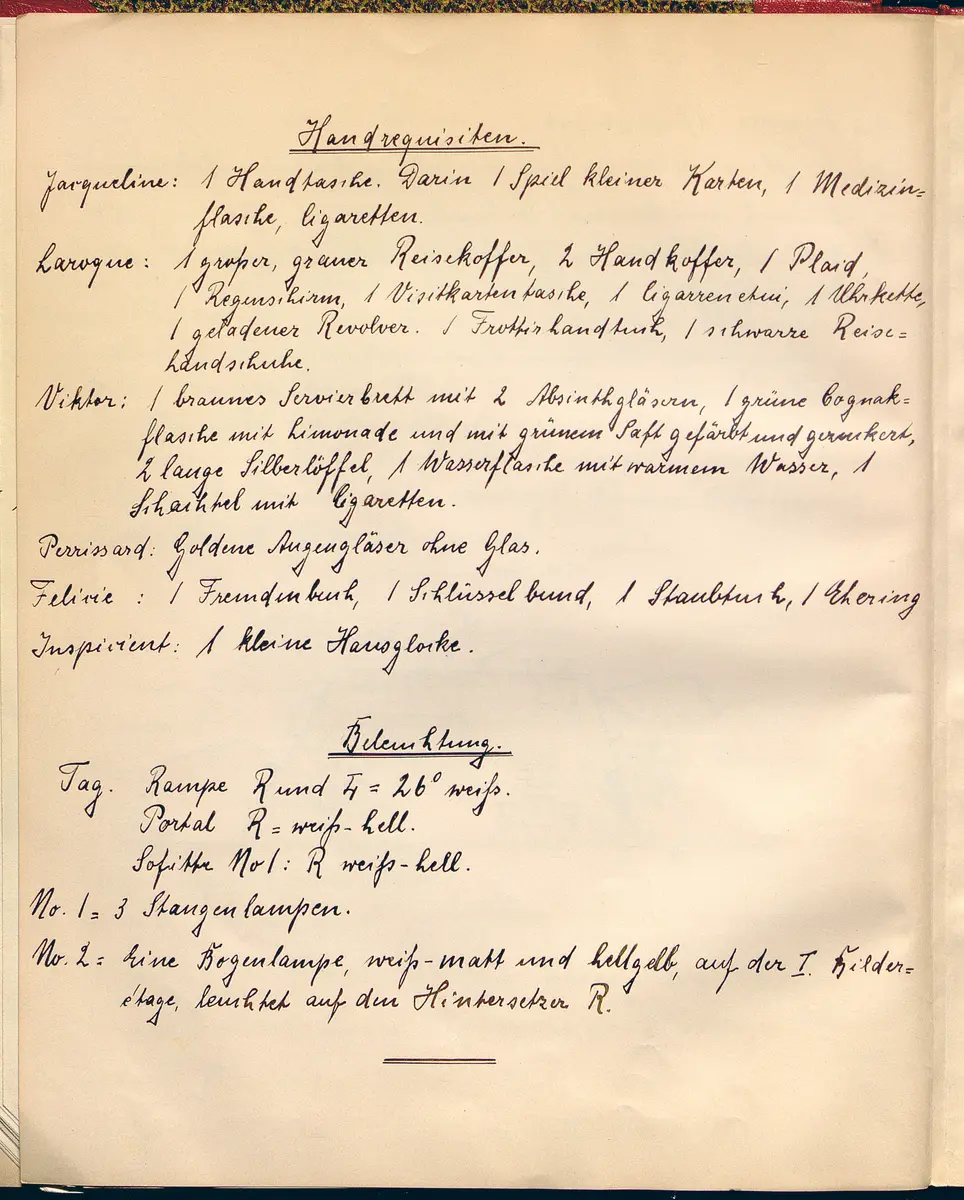 Handrequisiten.
Jacqueline: 1 Handtasche. Darin 1 Spiel kleiner Karten, 1 Medizin=
flasche, Cigaretten.
Laroque: 1 großer, grauer Reisekoffer, 2 Handkoffer, 1 Plaid,
1 Regenschirm, 1 Visitkartentasche, 1 Cigarrenetui, 1 Uhrkette,
1 geladener Revolver. 1 Frottirhandtuch, 1 schwarze Reise=
handschuhe.
Viktor: 1 braunes Servierbrett mit 2 Absinthgläsern, 1 grüne Cognak=
flasche mit Limonade und mit grünem Saft gefärbt und gezuckert,
2 lange Silberlöffel, 1 Wasserflasche mit warmem Wasser, 1
Schachtel mit Cigaretten.
Perrissard: Goldene Augengläser ohne Glas.
Felicie : 1 Fremdenbuch, 1 Schlüsselbund, 1 Staubtuch, 1 Ehering
Inspicient: 1 kleine Hausglocke.
Beleuchtung.
Tag. Rampe R und L = 26° weiß.
Portal R = weiß-hell.
Sofitte No 1: R weiß-hell.
No. 1 = 3 Stangenlampen.
No. 2 = Eine Bogenlampe, weiß-matt und hellgelb, auf der I. Bilder=
étage, leuchtet auf den Hintersetzer R.